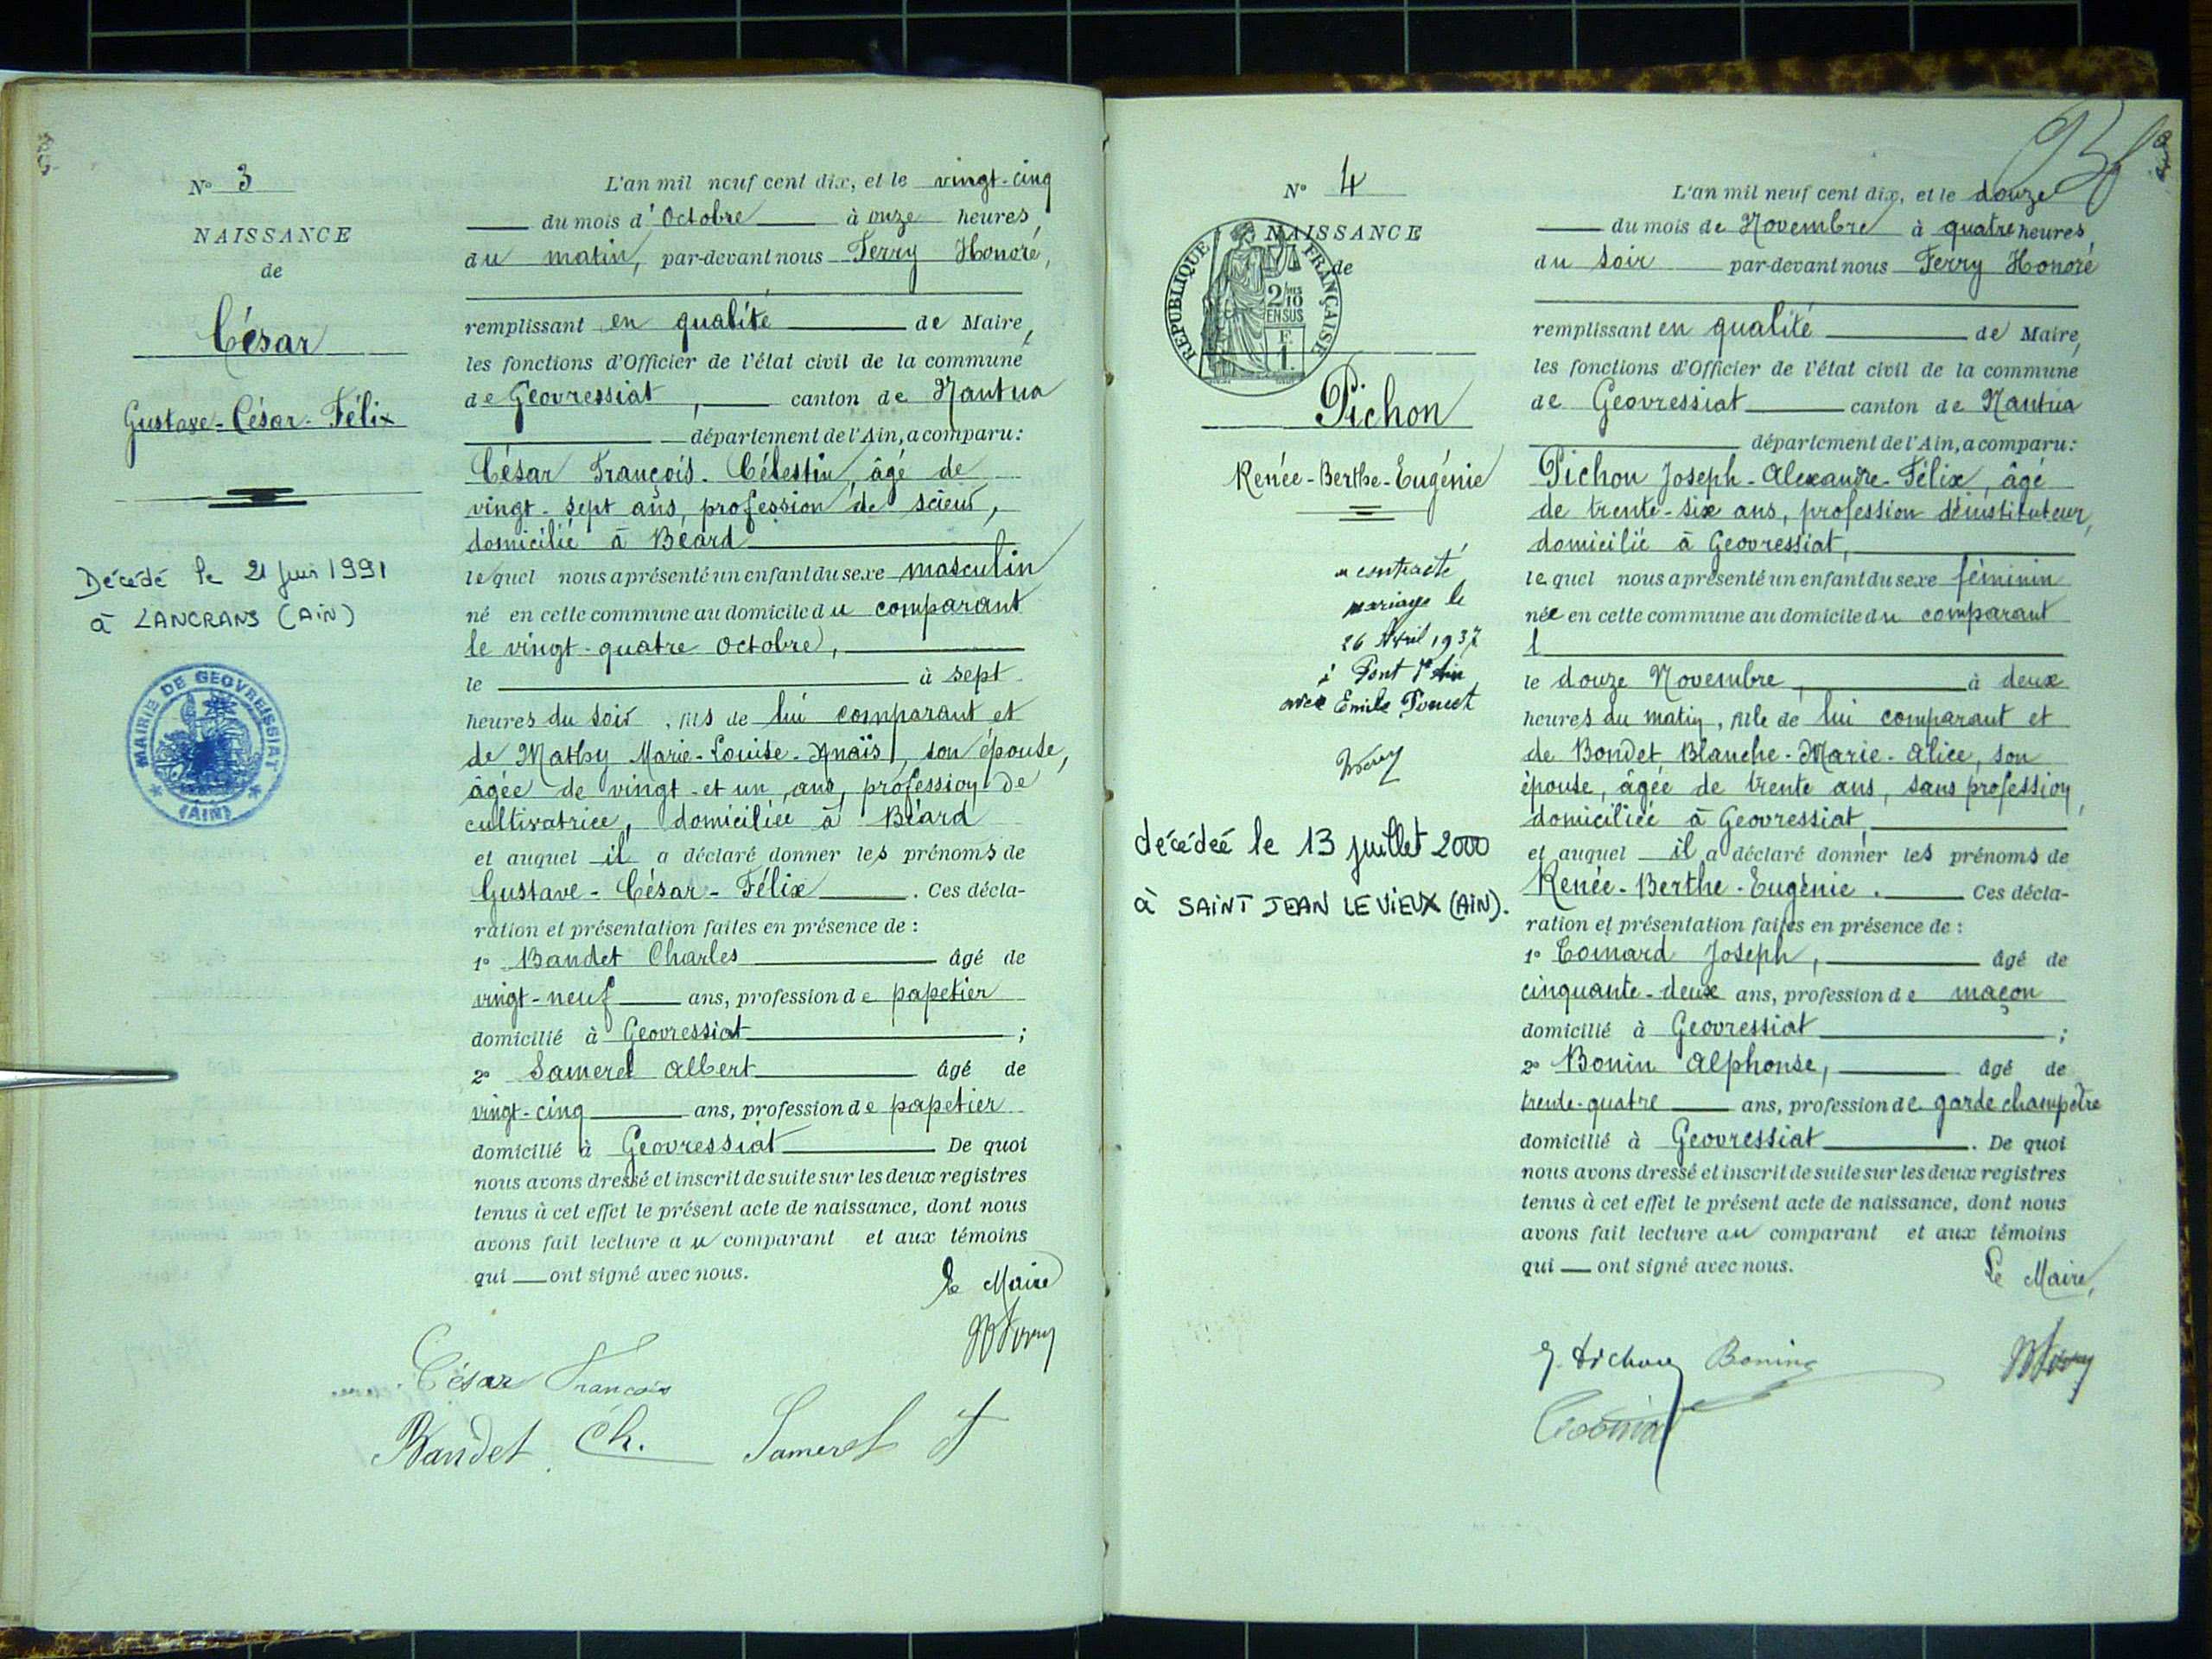 N° 3
NAISSANCE
de
César
Gustave-César-Félix
Décédé le 21 juin 1991
à LANCRANS (AIN)
MAIRIE DE GEOVREISSIAT
(AIN)
L'an mil neuf cent dix, et le vingt-cinq
du mois d'Octobre à onze heures
du matin, par-devant nous Ferry Honoré,
remplissant en qualité de Maire,
les fonctions d'Officier de l'état civil de la commune
de Geovressiat, canton de Nantua
département de l'Ain, a comparu:
César François-Célestin, âgé de
vingt-sept ans, profession de scieur,
domicilié à Béard
lequel nous a présenté un enfant du sexe masculin
né en cette commune au domicile du comparant
le vingt-quatre Octobre,
le à sept
heures du soir, fils de lui comparant et
de Mathy Marie-Louise-Anaïs, son épouse,
âgée de vingt-et un ans, profession de
cultivatrice, domiciliée à Béard
et auquel il a déclaré donner les prénoms de
Gustave-César-Félix. Ces décla-
ration et présentation faites en présence de :
1° Bandet Charles âgé de
vingt-neuf ans, profession de papetier
domicilié à Geovressiat ;
2° Samerel Albert âgé de
vingt-cinq ans, profession de papetier
domicilié à Geovressiat De quoi
nous avons dressé et inscrit de suite sur les deux registres
tenus à cet effet le présent acte de naissance, dont nous
avons fait lecture au comparant et aux témoins
qui ont signé avec nous.
Le Maire
César François
Bandet Ch. Samerel
N° 4
NAISSANCE
de
RÉPUBLIQUE FRANÇAISE
2/10
EN SUS
F.
1.
Pichon
Renée-Berthe-Eugénie
a contracté
mariage le
26 Avril 1937
à Pont d'Ain
avec Emile Poncet
décédée le 13 juillet 2000
à SAINT JEAN LE VIEUX (AIN).
L'an mil neuf cent dix, et le douze
du mois de Novembre à quatre heures
du soir par-devant nous Ferry Honoré
remplissant en qualité de Maire,
les fonctions d'Officier de l'état civil de la commune
de Geovressiat canton de Nantua
département de l'Ain, a comparu:
Pichon Joseph-Alexandre-Félix, âgé
de trente-six ans, profession d'instituteur,
domicilié à Geovressiat,
lequel nous a présenté un enfant du sexe féminin
née en cette commune au domicile du comparant
l
le douze Novembre, à deux
heures du matin, fille de lui comparant et
de Bondet Blanche-Marie-Alice, son
épouse, âgée de trente ans, sans profession,
domiciliée à Geovressiat,
et auquel il a déclaré donner les prénoms de
Renée-Berthe-Eugénie. Ces décla-
ration et présentation faites en présence de :
1° Comard Joseph, âgé de
cinquante-deux ans, profession de maçon
domicilié à Geovressiat ;
2° Bonin Alphonse, âgé de
trente-quatre ans, profession de garde champêtre
domicilié à Geovressiat. De quoi
nous avons dressé et inscrit de suite sur les deux registres
tenus à cet effet le présent acte de naissance, dont nous
avons fait lecture au comparant et aux témoins
qui ont signé avec nous.
Le Maire,
Bonin